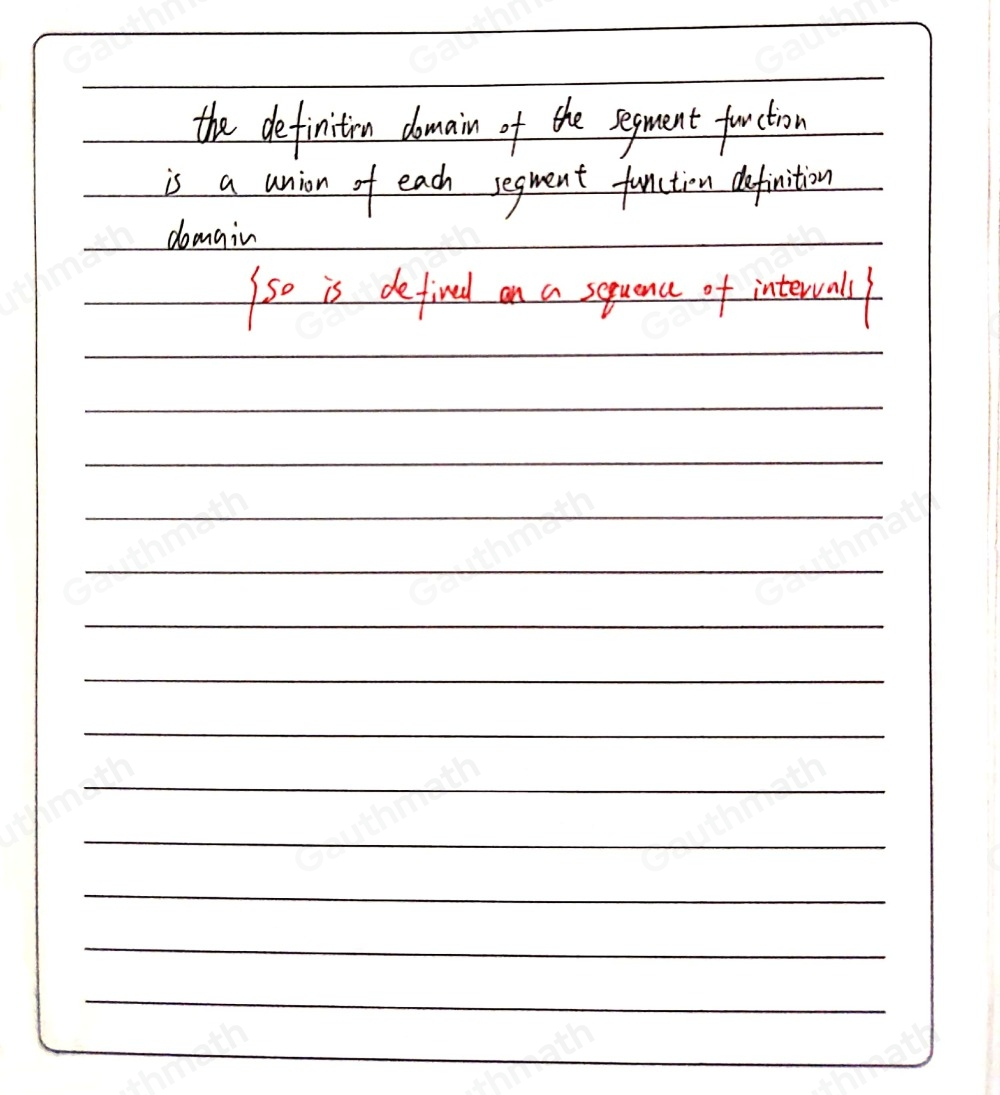 the definitirn domain of the segment function
is a union of each segment function definition
domain
{so is defined on a sequence of intervals}